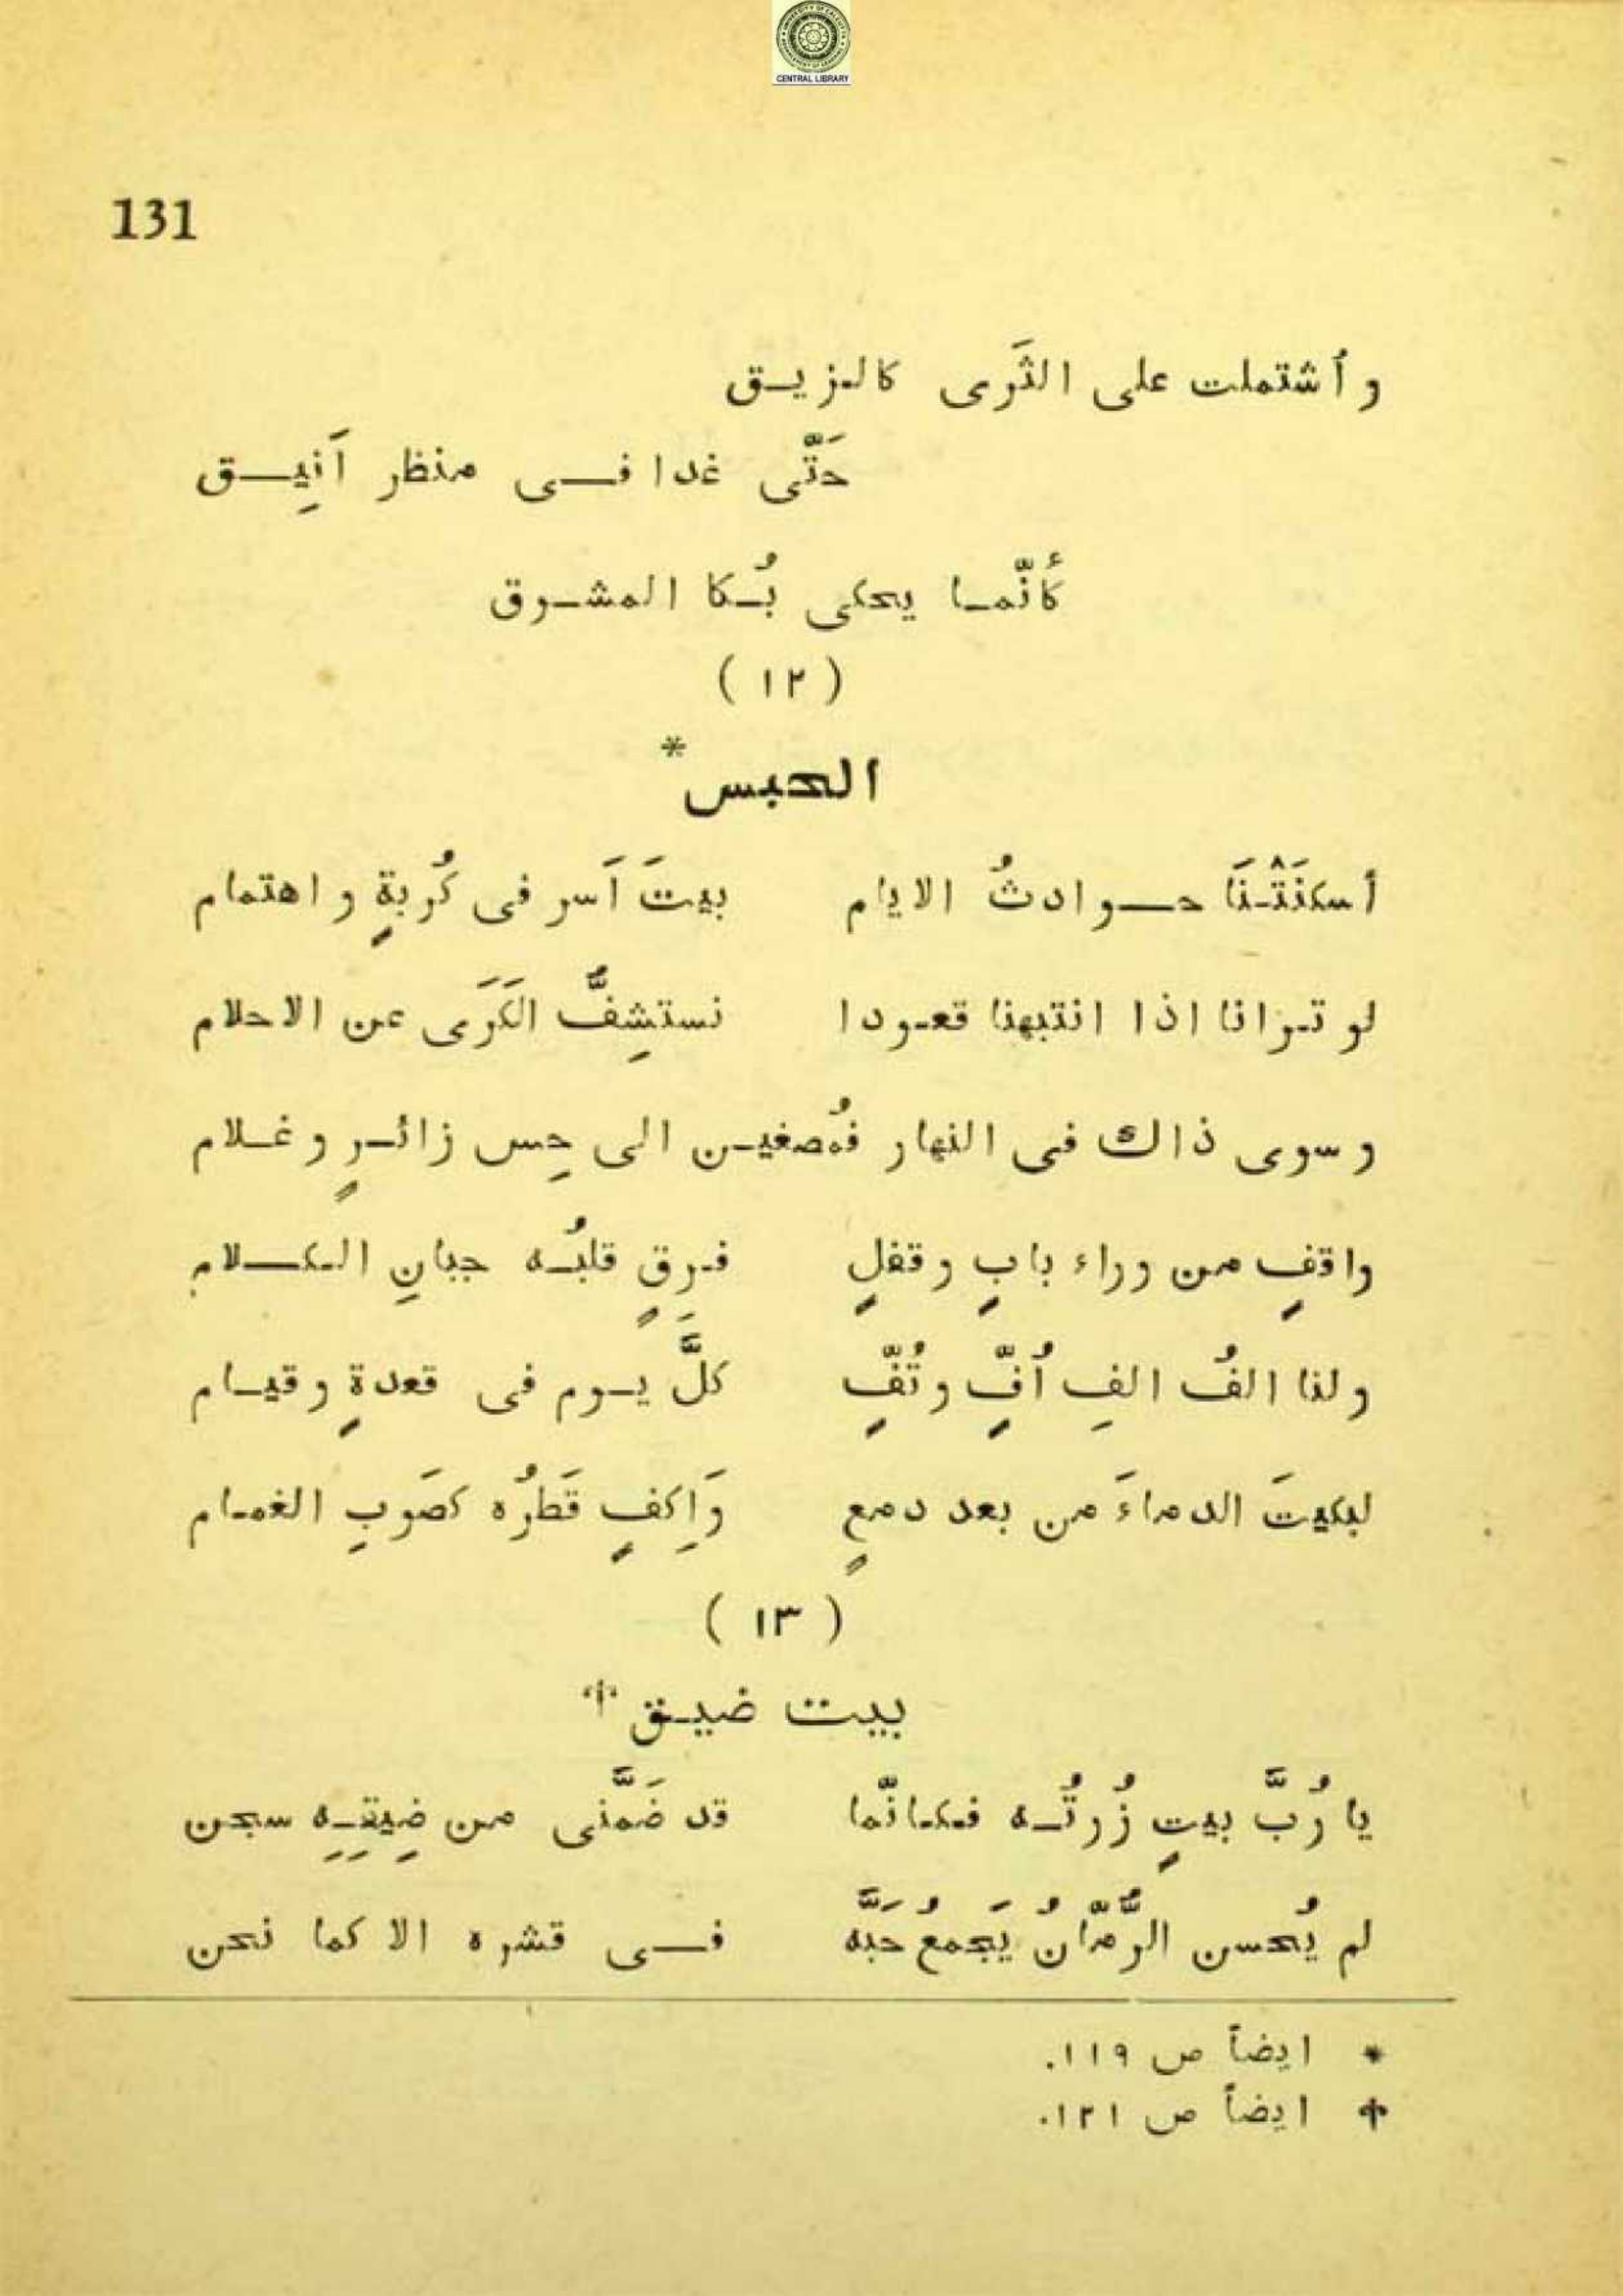 CENTRAL LIBRARY
131
و أشتملت على الثَرى كالزيق
حَتَّى غدا فى منظر اَنِيق
كأنّما يحكى بُكا المشوق
( ١٢ )
الحبس*
أسكنَتْنَا حوادثُ الايام بيتَ اَسر فى كُربةٍ و اهتمام
لو ترانا اذا انتبهنا قعودا نستشِفُّ الكَرَى عن الاحلام
و سوى ذاك فى النهار فمُصغين الى حِس زائرٍ و غلام
واقفٍ من وراء بابٍ و قفلٍ فرقٍ قلبُه جبانِ الكلام
ولنا الفُ الفِ اُفٍّ و تُفٍّ كلَّ يوم فى قعدةٍ و قيام
لبكيتَ الدماءَ من بعد دمعٍ وَاكِفٍ قَطرُه كصَوبِ الغمام
( ١٣ )
بيت ضيق †
يا رُبَّ بيتٍ زُرتُه فكانّما قد ضَمَّنى من ضِيقِهِ سجن
لم يُحسن الرُّمّانُ يَجمعُ حَبَّه فى قشره الا كما نحن
* ايضاً ص ١١٩.
† ايضاً ص ١٢١.